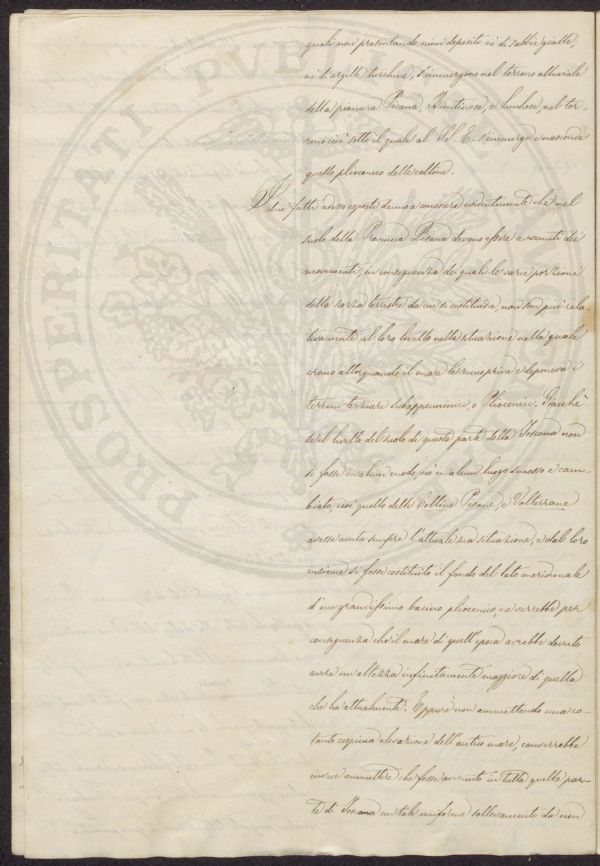 quali non presentando niun deposito nè di sabbie gialle,
nè d'argille turchine, s'immergono nel terreno alluviale
della pianura Pisana, Bientinese, e Lucchese, nel ter-
reno cioè sotto il quale al Sd. E. s'immerge e nasconde
quello pliocenico delle colline.
I due fatti adesso esposti danno a conoscere evidentemente che nel
suolo della Provincia Pisana devono essere avvenuti dei
movimenti, in conseguenza dei quali le varie porzioni
della scorza terrestre da cui si costituisce, non son più rela
tivamente al loro livello nella situazione nella quale
erano allorquando il mare le ricuopriva e deponeva i
terreni terziari subappennini, o Pliocenici. Giacchè
se il livello del suolo di questa parte della Toscana non
si fosse in alcun modo, nè in alcun luogo smosso e cam-
biato, cioè quello delle Colline Pisane, e Volterrane
avesse avuta sempre l'attuale sua situazione, e dal loro
insieme si fosse costituito il fondo del lato meridionale
d'un grandissimo bacino pliocenico, ne verrebbe per
conseguenza che il mare di quell'epoca avrebbe dovuto
avere un'altezza infinitamente maggiore di quella
che ha attualmente. Eppure non ammettendo una co-
tanto cospicua elevazione dell'antico mare, converrebbe
invece ammettere che fosse avvenuto in tutta quella par-
te di Toscana un tale uniforme sollevamento da non
PROSPERITATI PVBLICAE